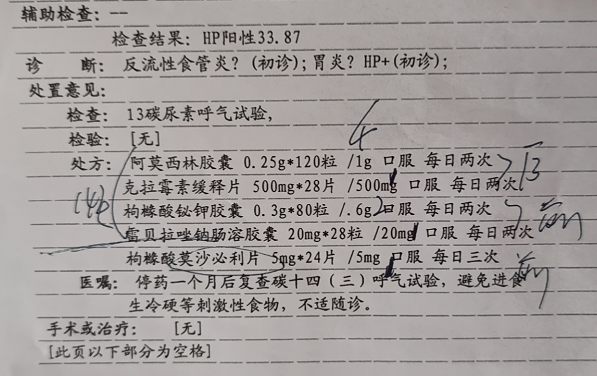 辅助检查：--
检查结果：HP阳性33.87
诊 断：反流性食管炎？（初诊）；胃炎？HP+（初诊）；
处置意见：
检查：13碳尿素呼气试验，
检验：[无]
4
处方：阿莫西林胶囊 0.25g*120粒 /1g 口服 每日两次
克拉霉素缓释片 500mg*28片 /500mg 口服 每日两次
枸橼酸铋钾胶囊 0.3g*80粒 /.6g 2 口服 每日两次
雷贝拉唑钠肠溶胶囊 20mg*28粒 /20mg 口服 每日两次
枸橼酸莫沙必利片 5mg*24片 /5mg 口服 每日三次
医嘱：停药一个月后复查碳十四（三）呼气试验，避免进食
生冷硬等刺激性食物，不适随诊。
手术或治疗： [无]
[此页以下部分为空格]